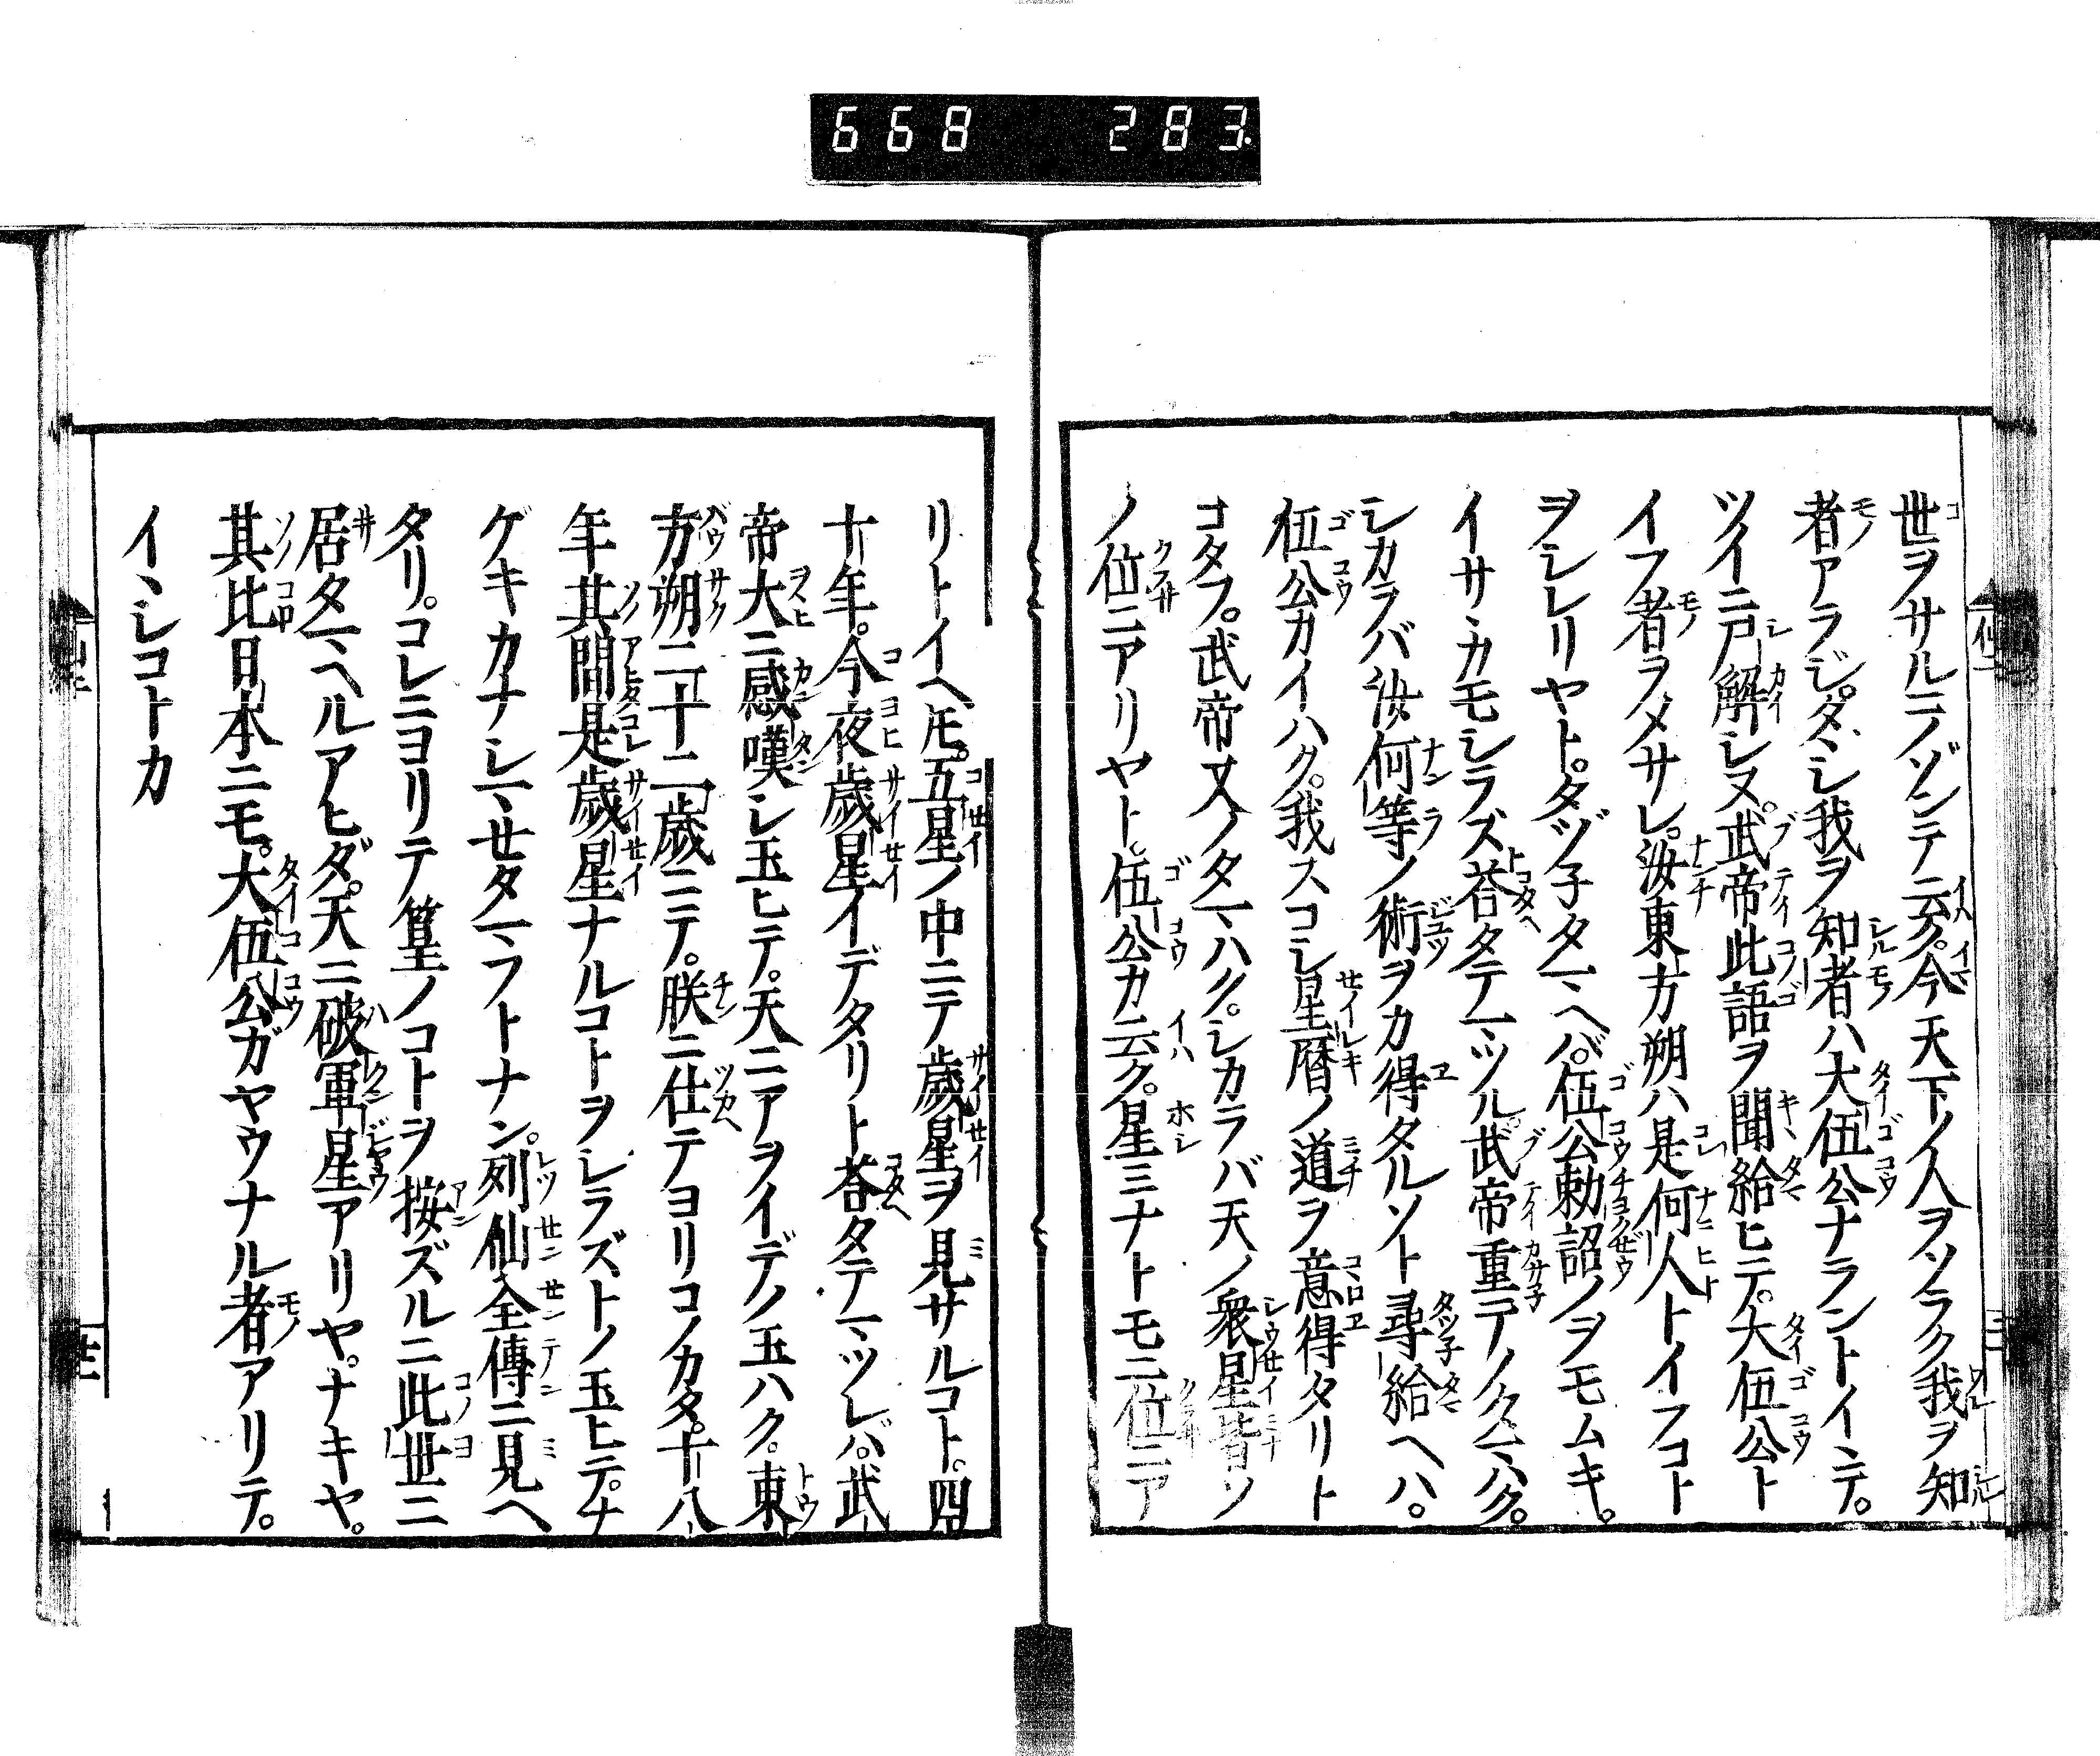 668 283.
世ヲサルニノゾンテ云ク。今天下ノ人ヲソラク我ヲ知
者アラジ。タヾシ我ヲ知者ハ大伍公ナラントイヽテ。
ツイニ尸解シヌ。武帝此語ヲ聞給ヒテ。大伍公ト
イフ者ヲメサレ。汝東方朔ハ是何人トイフコト
ヲシレリヤト。タヅ子タマヘバ。伍公勅詔ノヲモムキ。
イサヽカモシラズ答タテマツル。武帝重テノタマハク。
シカラバ汝何等ノ術ヲカ得タルソト尋給ヘハ。
伍公カイハク。我スコシ星暦ノ道ヲ意得タリト
コタフ。武帝又ノタマハク。シカラバ天ノ衆星皆ソ
ノ位ニアリヤト。伍公カ云ク。星ミナトモニ位ニア
リトイヘ𪜈。五星ノ中ニテ歳星ヲ見サルコト。四
十年。今夜歳星イデタリト答タテマツレバ。武
帝大ニ感嘆シ玉ヒテ。天ニアヲイデノ玉ハク。東
方朔二十二歳ニテ。朕ニ仕テヨリコノカタ。十八
年其間是歳星ナルコトヲシラズトノ玉ヒテ。ナ
ゲキカナシマセタマフトナン。列仙全傳ニ見ヘ
タリ。コレニヨリテ篁ノコトヲ按ズルニ此世ニ
居タマヘルアヒダ。天ニ破軍星アリヤ。ナキヤ。
其比日本ニモ。大伍公ガヤウナル者アリテ。
イヽシコトカ